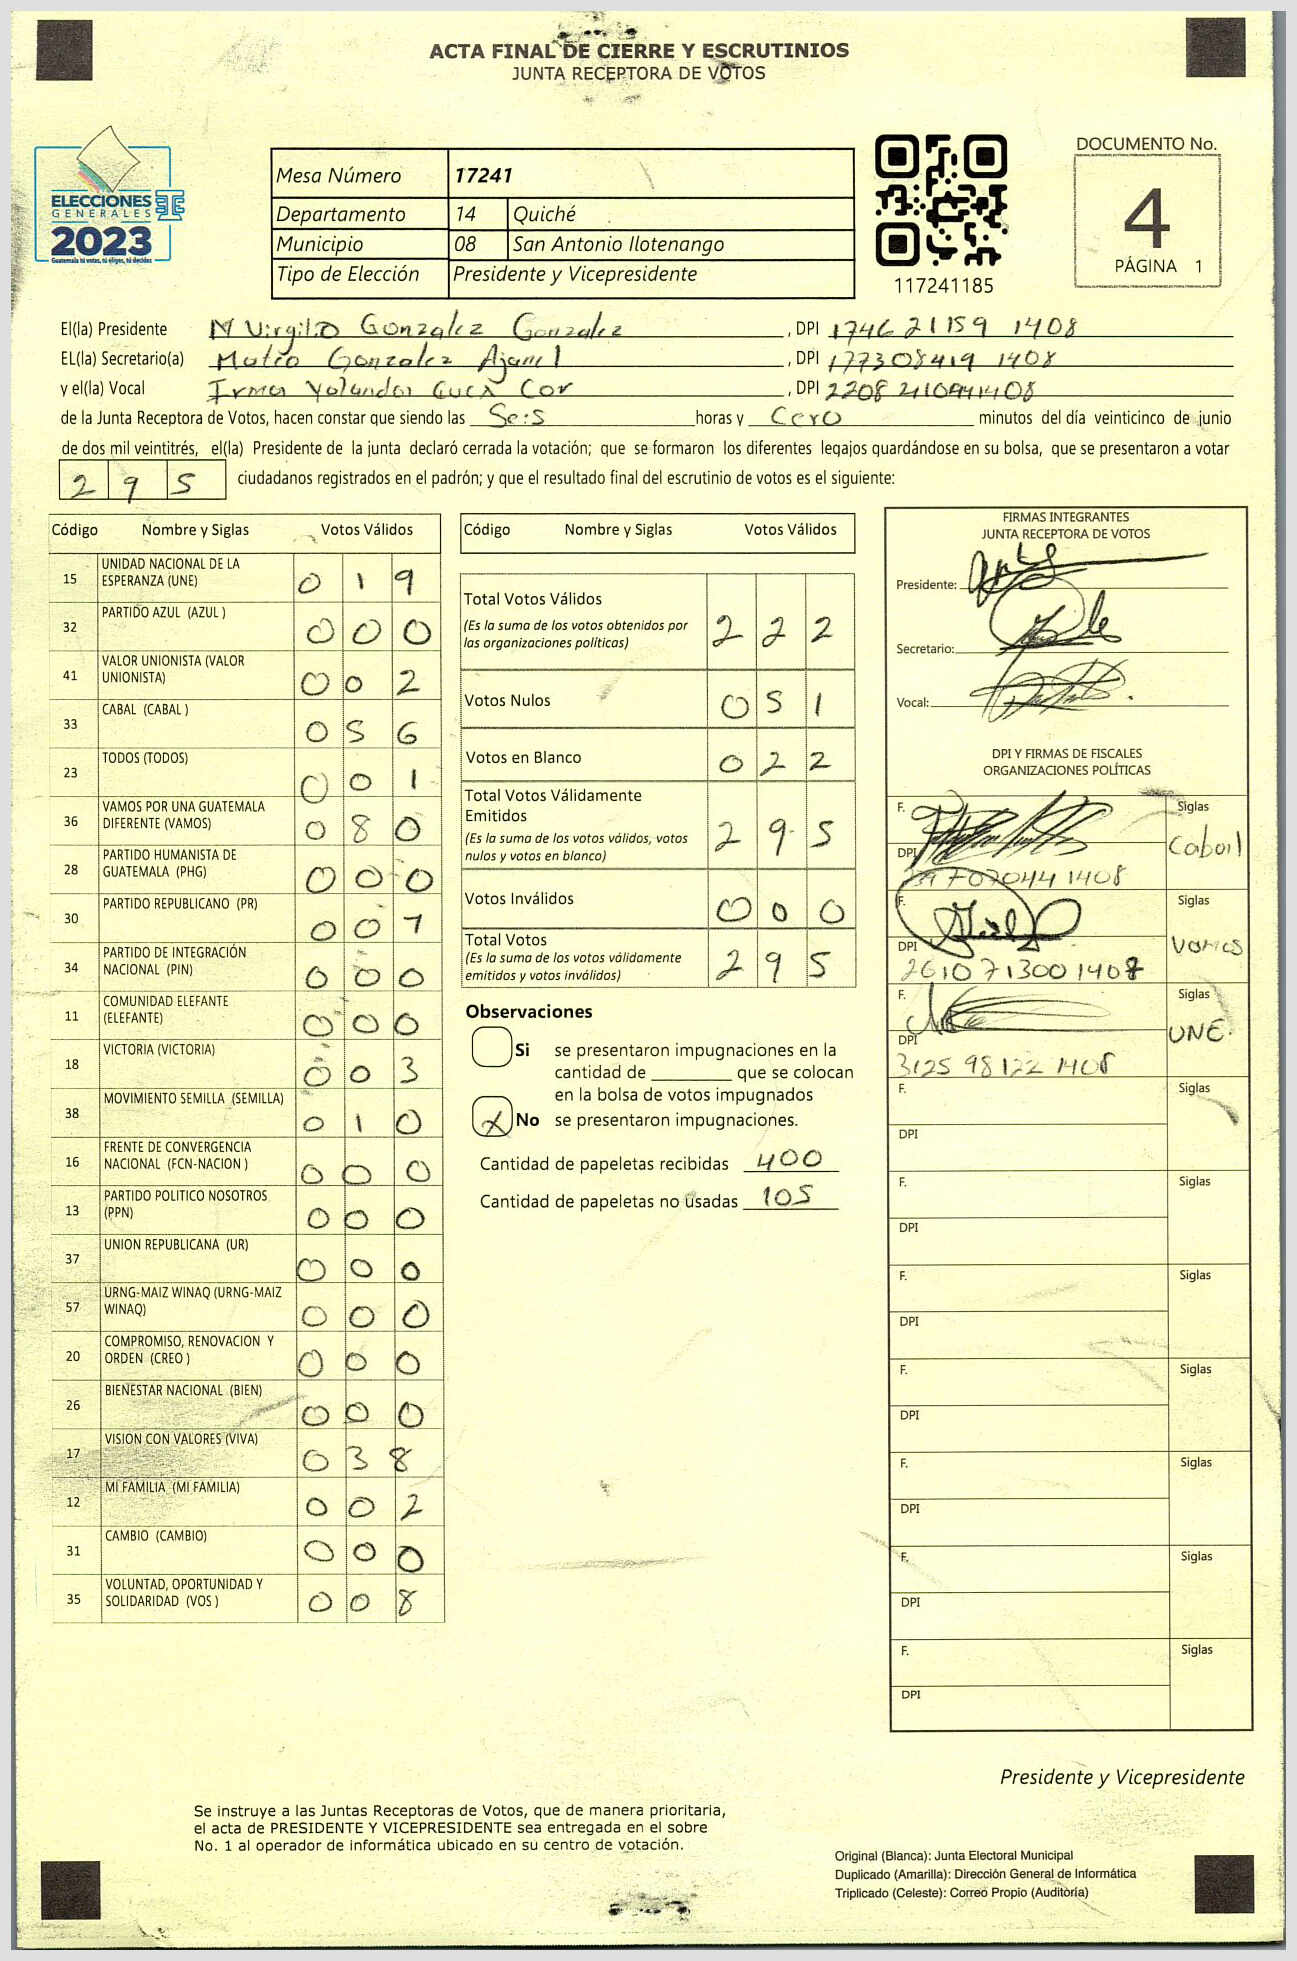 ACTA FINAL DE CIERRE Y ESCRUTINIOS
JUNTA RECEPTORA DE VOTOS
ELECCIONES
GENERALES
2023
Guatemala tú votas, tú eliges, tú decides
Mesa Número 17241
Departamento 14 Quiché
Municipio 08 San Antonio Ilotenango
Tipo de Elección Presidente y Vicepresidente
117241185
DOCUMENTO No.
4
PÁGINA 1
El(la) Presidente N Virgilio Gonzalez Gonzalez , DPI 1746 21159 1408
EL(la) Secretario(a) Mateo Gonzalez Ajanel , DPI 177308419 1408
y el(la) Vocal Irma Yolanda Cor , DPI 2208 21094 1408
de la Junta Receptora de Votos, hacen constar que siendo las Seis horas y Cero minutos del día veinticinco de junio
de dos mil veintitrés, el(la) Presidente de la junta declaró cerrada la votación; que se formaron los diferentes legajos guardándose en su bolsa, que se presentaron a votar
2 9 5 ciudadanos registrados en el padrón; y que el resultado final del escrutinio de votos es el siguiente:
Código Nombre y Siglas Votos Válidos
15 UNIDAD NACIONAL DE LA ESPERANZA (UNE) 0 1 9
32 PARTIDO AZUL (AZUL ) 0 0 0
41 VALOR UNIONISTA (VALOR UNIONISTA) 0 0 2
33 CABAL (CABAL ) 0 5 6
23 TODOS (TODOS) 0 0 1
36 VAMOS POR UNA GUATEMALA DIFERENTE (VAMOS) 0 8 0
28 PARTIDO HUMANISTA DE GUATEMALA (PHG) 0 0 0
30 PARTIDO REPUBLICANO (PR) 0 0 7
34 PARTIDO DE INTEGRACIÓN NACIONAL (PIN) 0 0 0
11 COMUNIDAD ELEFANTE (ELEFANTE) 0 0 0
18 VICTORIA (VICTORIA) 0 0 3
38 MOVIMIENTO SEMILLA (SEMILLA) 0 1 0
16 FRENTE DE CONVERGENCIA NACIONAL (FCN-NACION ) 0 0 0
13 PARTIDO POLITICO NOSOTROS (PPN) 0 0 0
37 UNION REPUBLICANA (UR) 0 0 0
57 URNG-MAIZ WINAQ (URNG-MAIZ WINAQ) 0 0 0
20 COMPROMISO, RENOVACION Y ORDEN (CREO ) 0 0 0
26 BIENESTAR NACIONAL (BIEN) 0 0 0
17 VISION CON VALORES (VIVA) 0 3 8
12 MI FAMILIA (MI FAMILIA) 0 0 2
31 CAMBIO (CAMBIO) 0 0 0
35 VOLUNTAD, OPORTUNIDAD Y SOLIDARIDAD (VOS ) 0 0 8
Código Nombre y Siglas Votos Válidos
Total Votos Válidos 2 2 2
(Es la suma de los votos obtenidos por
las organizaciones políticas)
Votos Nulos 0 5 1
Votos en Blanco 0 2 2
Total Votos Válidamente
Emitidos 2 9 5
(Es la suma de los votos válidos, votos
nulos y votos en blanco)
Votos Inválidos 0 0 0
Total Votos 2 9 5
(Es la suma de los votos válidamente
emitidos y votos inválidos)
Observaciones
Si se presentaron impugnaciones en la
cantidad de ________ que se colocan
en la bolsa de votos impugnados
X No se presentaron impugnaciones.
Cantidad de papeletas recibidas 400
Cantidad de papeletas no usadas 105
FIRMAS INTEGRANTES
JUNTA RECEPTORA DE VOTOS
Presidente:
Secretario:
Vocal:
DPI Y FIRMAS DE FISCALES
ORGANIZACIONES POLÍTICAS
F. Siglas
Cabal
DPI
F. Siglas
Vamos
DPI
2610 71300 1408
F. Siglas
UNE.
DPI
3125 98122 1408
F. Siglas
DPI
F. Siglas
DPI
F. Siglas
DPI
F. Siglas
DPI
F. Siglas
DPI
F. Siglas
DPI
F. Siglas
DPI
Presidente y Vicepresidente
Se instruye a las Juntas Receptoras de Votos, que de manera prioritaria,
el acta de PRESIDENTE Y VICEPRESIDENTE sea entregada en el sobre
No. 1 al operador de informática ubicado en su centro de votación.
Original (Blanca): Junta Electoral Municipal
Duplicado (Amarilla): Dirección General de Informática
Triplicado (Celeste): Correo Propio (Auditoría)